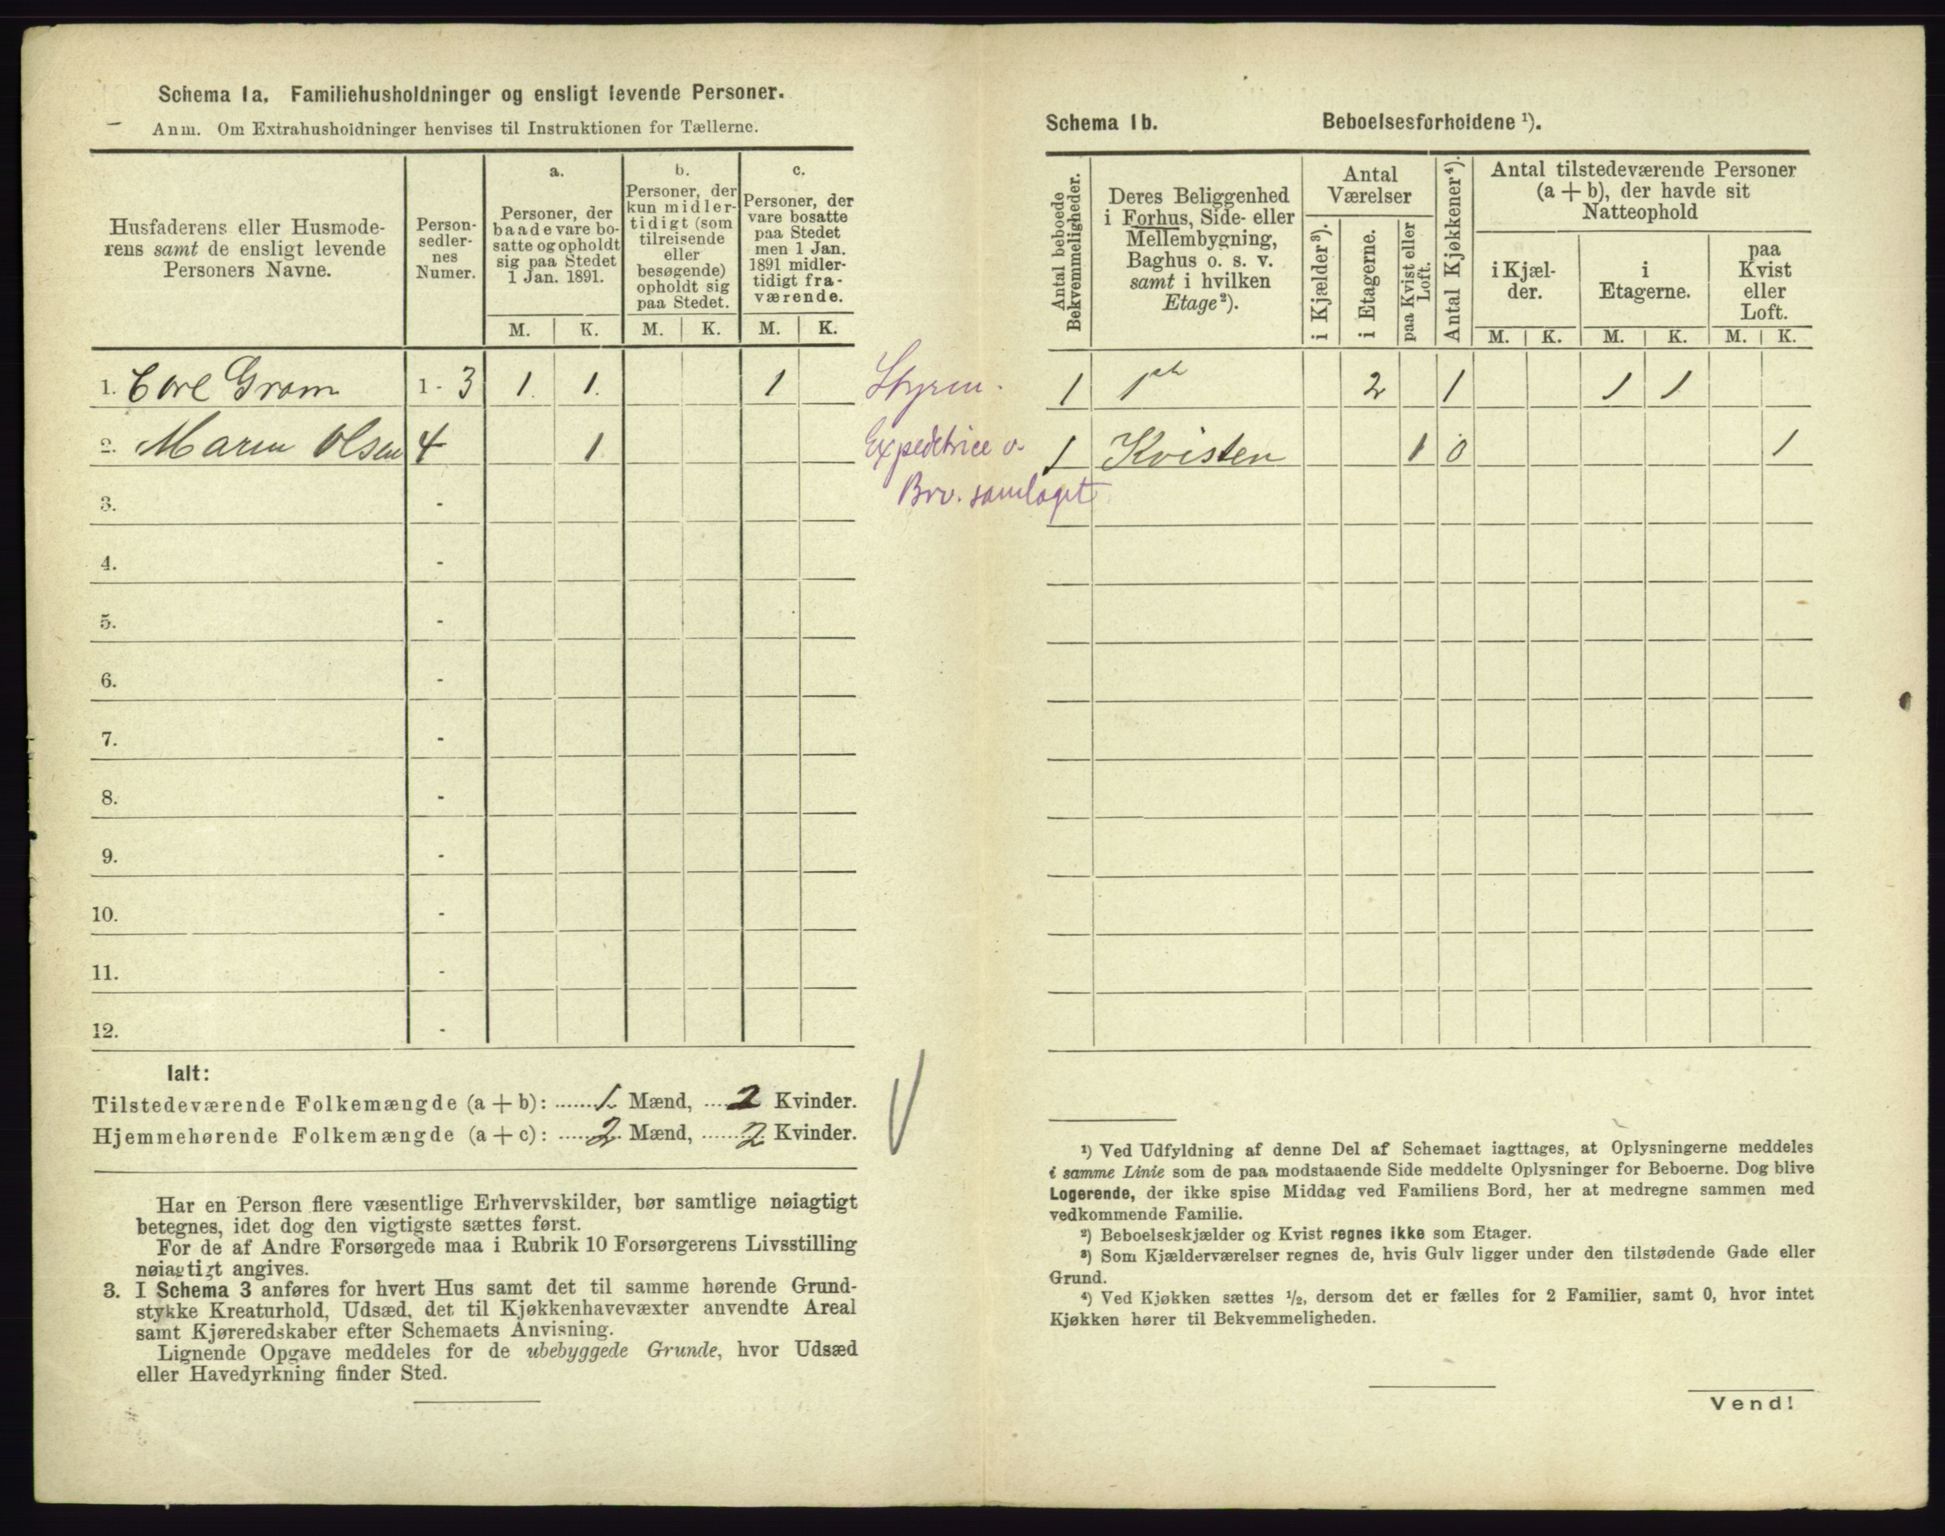 Schema 1a. Familiehusholdninger og ensligt levende Personer.
Anm. Om Extrahusholdninger henvises til Instruktionen for Tællerne.
Husfaderens eller Husmode-
rens samt de ensligt levende
Personers Navne.
Person-
sedler-
nes
Numer.
a.
Personer, der
baade vare bo-
satte og opholdt
sig paa Stedet
1 Jan. 1891.
b.
Personer, der
kun midler-
tidigt (som
tilreisende
eller
besøgende)
opholdt sig
paa Stedet.
c.
Personer, der
vare bosatte
paa Stedet
men 1 Jan.
1891 midler-
tidigt fra-
værende.
M. K. M. K. M. K.
1. Carl Gram 1 - 3 1 1 1
2. Maren Olsen 4 1
3. -
4. -
5. -
6. -
7. -
8. -
9. -
10. -
11. -
12. -
Ialt:
Tilstedeværende Folkemængde (a + b): 1 Mænd, 2 Kvinder.
Hjemmehørende Folkemængde (a + c): 2 Mænd, 2 Kvinder.
Har en Person flere væsentlige Erhvervskilder, bør samtlige nøiagtigt
betegnes, idet dog den vigtigste sættes først.
For de af Andre Forsørgede maa i Rubrik 10 Forsørgerens Livsstilling
nøiagtigt angives.
3. I Schema 3 anføres for hvert Hus samt det til samme hørende Grund-
stykke Kreaturhold, Udsæd, det til Kjøkkenhavevæxter anvendte Areal
samt Kjøreredskaber efter Schemaets Anvisning.
Lignende Opgave meddeles for de ubebyggede Grunde, hvor Udsæd
eller Havedyrkning finder Sted.
Expeditrice v
Brv. samlaget
Schema 1b. Beboelsesforholdene ¹).
Antal beboede
Bekvemmeligheder.
Deres Beliggenhed
i Forhus, Side- eller
Mellembygning,
Baghus o. s. v.
samt i hvilken
Etage²).
Antal
Værelser
i Kjælder³).
i Etagerne.
paa Kvist eller
Loft.
Antal Kjøkkener⁴).
Antal tilstedeværende Personer
(a + b), der havde sit
Natteophold
i Kjæl-
der.
i
Etagerne.
paa
Kvist
eller
Loft.
M. K. M. K. M. K.
1 1ste 2 1 1 1
1 Kvisten 1 0 1
¹) Ved Udfyldning af denne Del af Schemaet iagttages, at Oplysningerne meddeles
i samme Linie som de paa modstaaende Side meddelte Oplysninger for Beboerne. Dog blive
Logerende, der ikke spise Middag ved Familiens Bord, her at medregne sammen med
vedkommende Familie.
²) Beboelseskjælder og Kvist regnes ikke som Etager.
³) Som Kjælderværelser regnes de, hvis Gulv ligger under den tilstødende Gade eller
Grund.
⁴) Ved Kjøkken sættes ½, dersom det er fælles for 2 Familier, samt 0, hvor intet
Kjøkken hører til Bekvemmeligheden.
Vend!